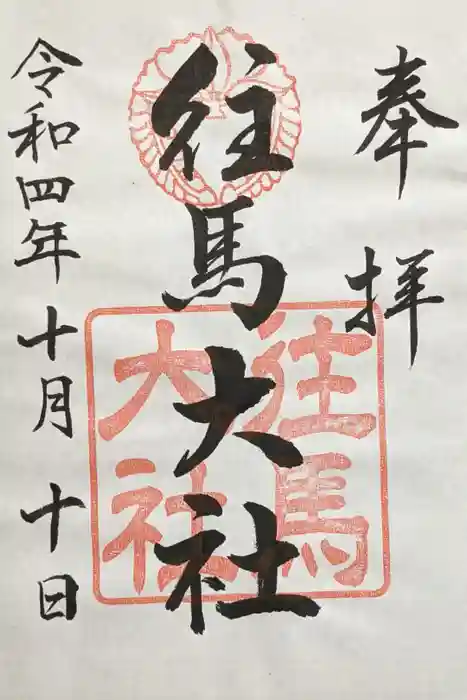 奉拝
往馬大社
往馬大社
令和四年十月十日